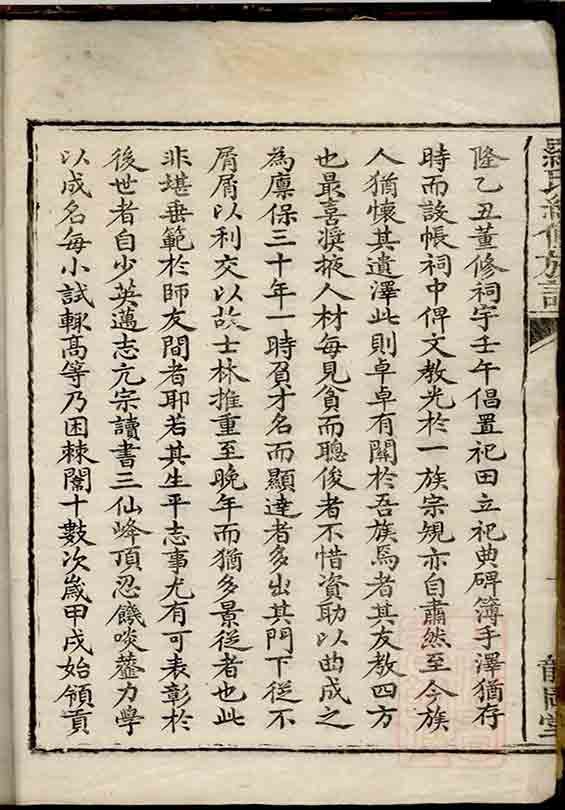 隆乙丑董修祠宇壬午倡置祀田立祀典碑簿手澤猶存
時而設帳祠中俾文教光於一族宗規亦自肅然至今族
人猶懷其遺澤此則卓卓有關於吾族焉者其友教四方
也最喜奬掖人材每見貧而聰俊者不惜資助以曲成之
為廩保三十年一時負才名而顯達者多出其門下從不
屑屑以利交以故士林推重至晚年而猶多景從者也此
非堪垂範於師友間者耶若其生平志事尤有可表彰於
後世者自少英邁志亢宗讀書三仙峰頂忍饑啖虀力學
以成名每小試輒高等乃困棘闈十數次歲甲戌始領貢